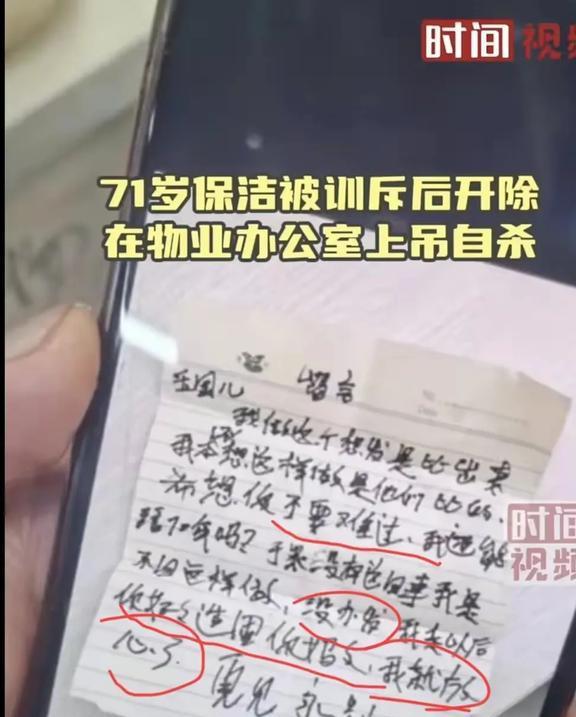 时间视频
71岁保洁被训斥后开除
在物业办公室上吊自杀
国儿 留言
我做这个想发是比出来
我本想这样做是他们比的、
希想你不要难过、我还能
几年吗?于果没有这回事我是
不回这样做、没办发 我走以后
你好々造固你妈々、我就放
心了.
再见 永别
时间
视频